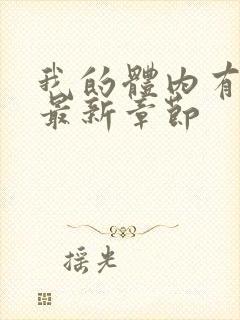 我的體內有
最新章節
摇光